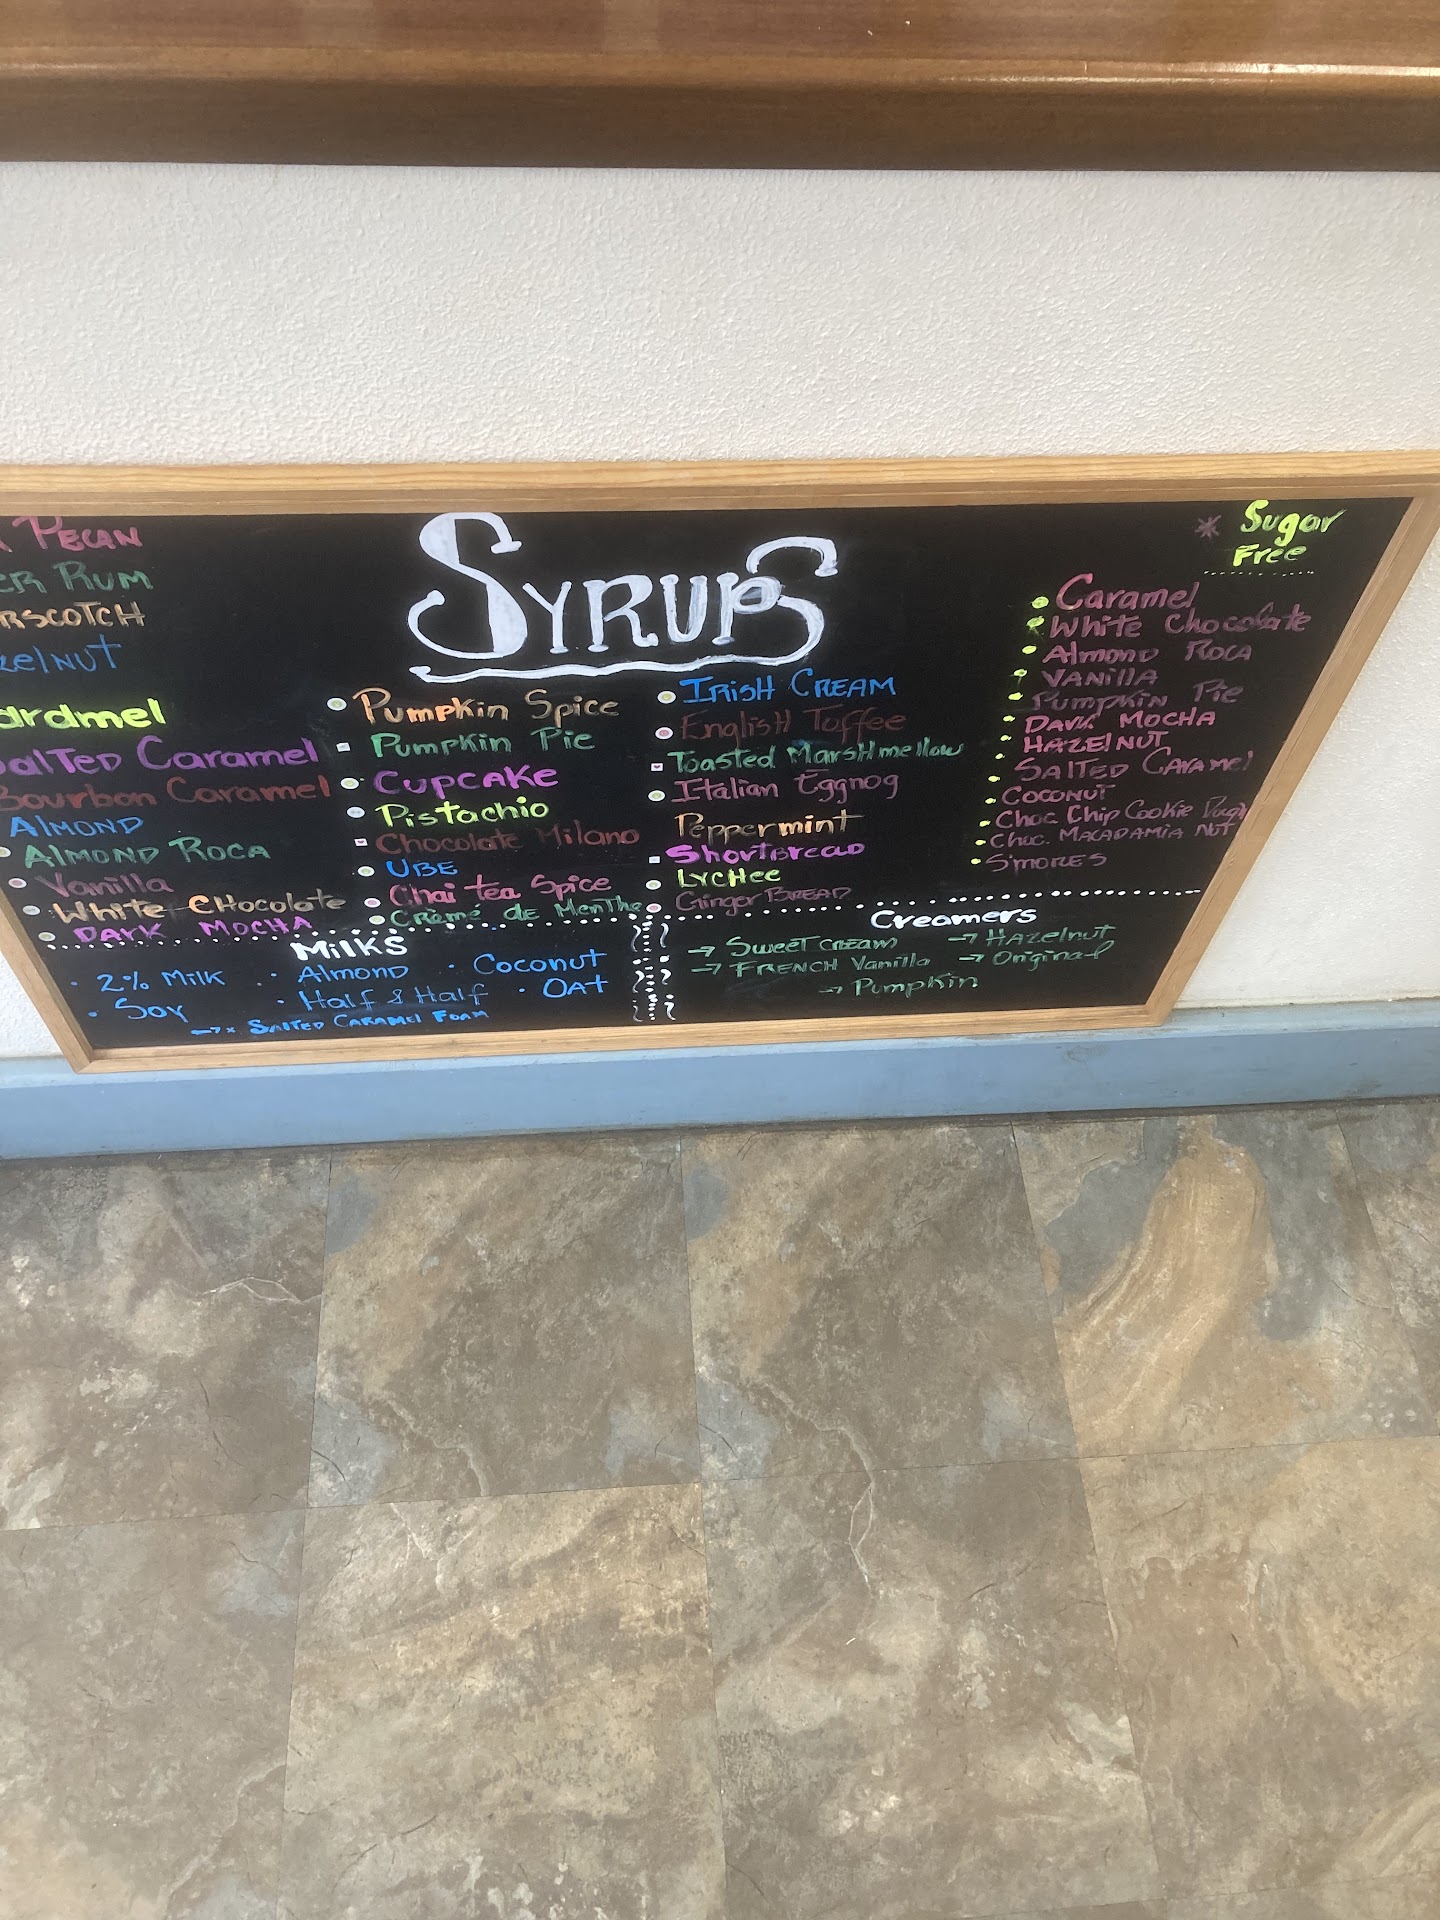 PECAN
RUM
SYRUPS
* Sugar
Free
Caramel
Salted Caramel
Bourbon Caramel
ALMOND
ALMOND ROCA
Vanilla
White Chocolate
DARK MOCHA
Pumpkin Spice
Pumpkin Pie
Cupcake
Pistachio
Chocolate Milano
UBE
Chai tea Spice
Crème de Menthe
IRISH CREAM
English Toffee
Toasted Marshmellow
Italian Eggnog
Peppermint
Shortbread
Lychee
Ginger BREAD
Caramel
White Chocolate
Almond Roca
VANILLA
Pumpkin Pie
DARK MOCHA
HAZELNUT
SALTED CARAMEL
COCONUT
Choc Chip Cookie
Choc. MACADAMIA NUT
S'MORES
Milks
· 2% Milk · Almond · Coconut
· Soy · Half & Half · Oat
→ * SALTED CARAMEL FOAM
Creamers
→ Sweet cream → Hazelnut
→ FRENCH Vanilla → Original
→ Pumpkin